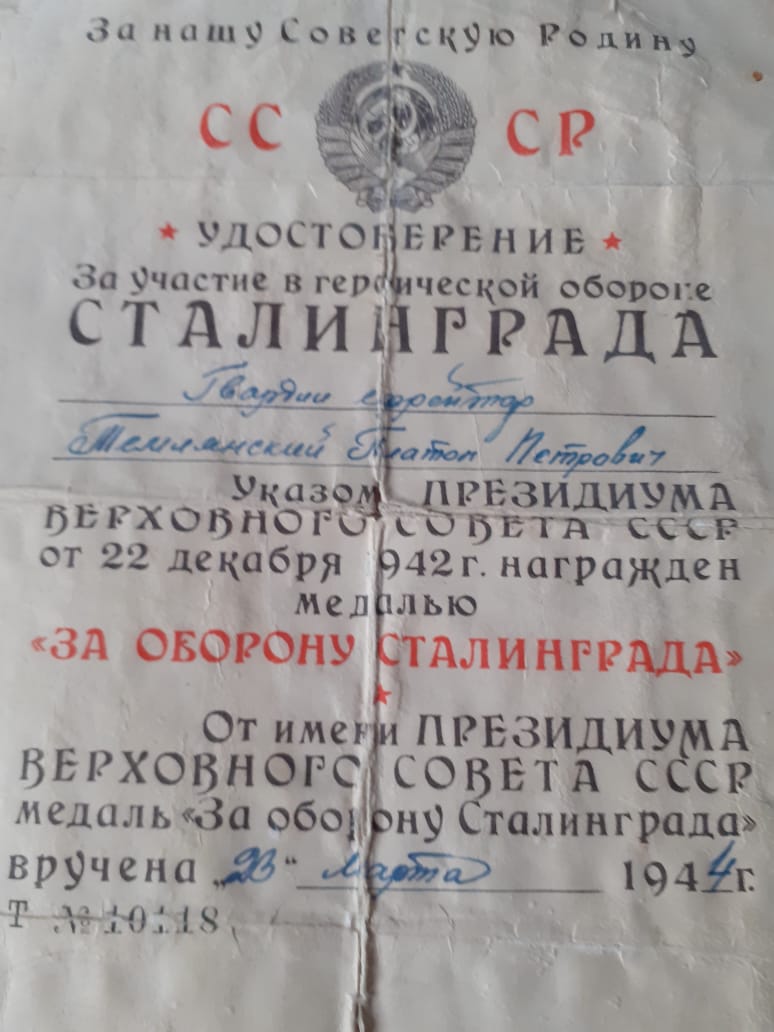 За нашу Советскую Родину
СС СР
УДОСТОВЕРЕНИЕ
За участие в героической обороне
СТАЛИНГРАДА
Гвардии ефрейтор
Темлянский Платон Петрович
Указом ПРЕЗИДИУМА
ВЕРХОВНОГО СОВЕТА СССР
от 22 декабря 1942 г. награжден
медалью
«ЗА ОБОРОНУ СТАЛИНГРАДА»
От имени ПРЕЗИДИУМА
ВЕРХОВНОГО СОВЕТА СССР
медаль «За оборону Сталинграда»
вручена „23" марта 1944 г.
Т № 10118